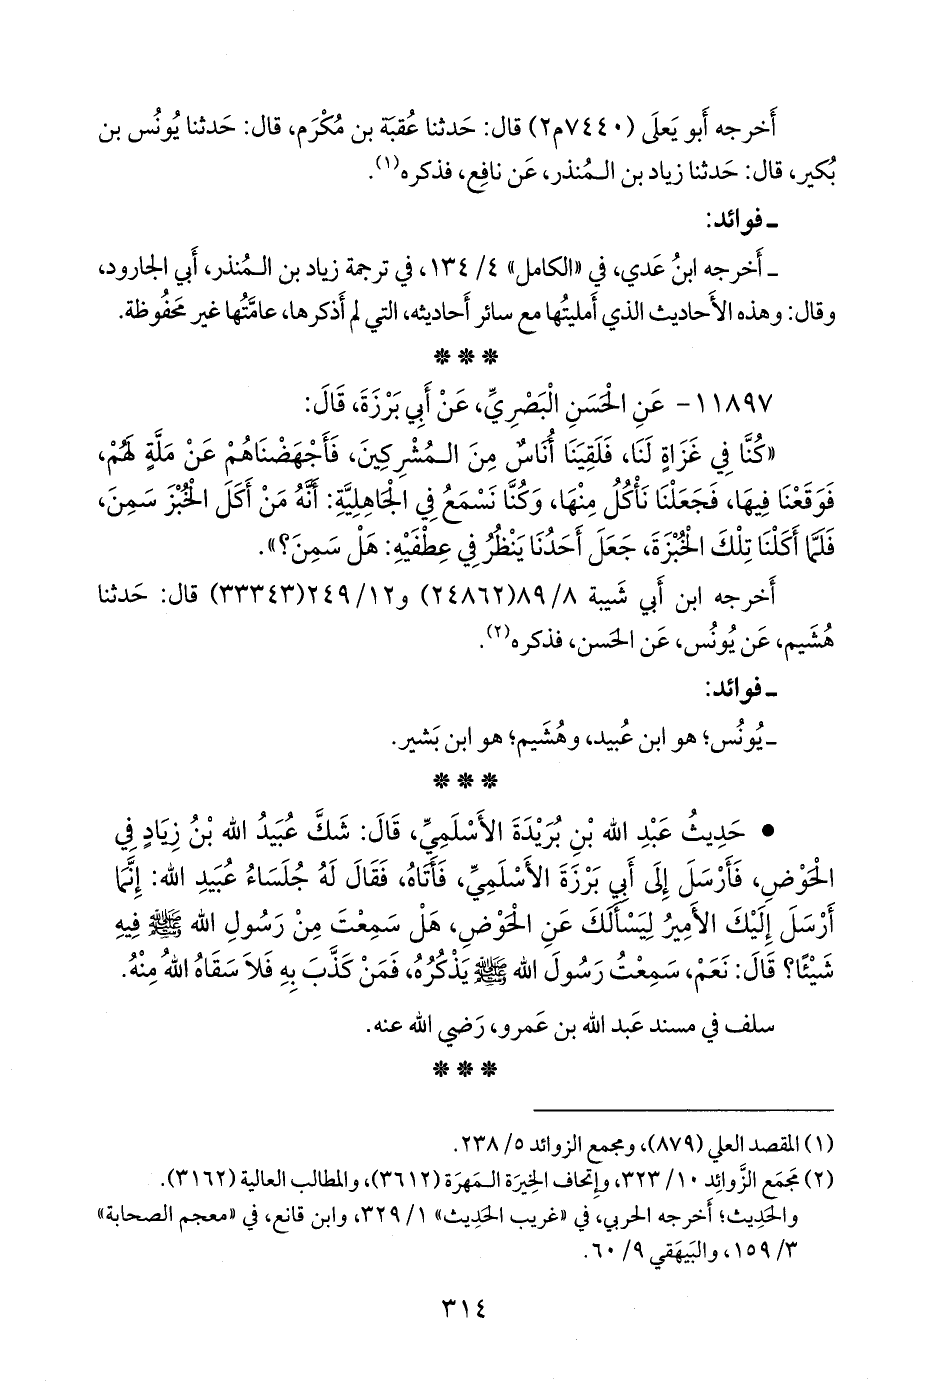 أَخرجه أَبو يَعلَى (٧٤٤٠م٢) قال: حَدثنا عُقبَة بن مُكْرَم، قال: حَدثنا يُونُس بن
بُكير، قال: حَدثنا زياد بن الـمُنذر، عَن نافِع، فذكره(١).
ـ فوائد:
ـ أَخرجه ابنُ عَدي، في «الكامل» ٤/ ١٣٤، في ترجمة زياد بن الـمُنذر، أَبي الجارود،
وقال: وهذه الأَحاديث الذي أَمليتُها مع سائر أَحاديثه، التي لم أَذكرها، عامَّتُها غير مَحفُوظة.
* * *
١١٨٩٧- عَنِ الْحَسَنِ الْبَصْرِيِّ، عَنْ أَبِي بَرْزَةَ، قَالَ:
«كُنَّا فِي غَزَاةٍ لَنَا، فَلَقِينَا أُنَاسٌ مِنَ الـمُشْرِكِينَ، فَأَجْهَضْنَاهُمْ عَنْ مَلَّةٍ لَهُمْ،
فَوَقَعْنَا فِيهَا، فَجَعَلْنَا نَأْكُلُ مِنْهَا، وَكُنَّا نَسْمَعُ فِي الْجَاهِلِيَّةِ: أَنَّهُ مَنْ أَكَلَ الْخُبْزَ سَمِنَ،
فَلَمَّا أَكَلْنَا تِلْكَ الْخُبْزَةَ، جَعَلَ أَحَدُنَا يَنْظُرُ فِي عِطْفَيْهِ: هَلْ سَمِنَ؟».
أَخرجه ابن أَبي شَيبة ٨/ ٨٩(٢٤٨٦٢) و١٢/ ٢٤٩(٣٣٣٤٣) قال: حَدثنا
هُشَيم، عَن يُونُس، عَن الحَسن، فذكره(٢).
ـ فوائد:
ـ يُونُس؛ هو ابن عُبيد، وهُشَيم؛ هو ابن بَشير.
* * *
• حَدِيثُ عَبْدِ الله بْنِ بُرَيْدَةَ الأَسْلَمِيِّ، قَالَ: شَكَّ عُبَيْدُ الله بْنُ زِيَادٍ فِي
الْحَوْضِ، فَأَرْسَلَ إِلَى أَبِي بَرْزَةَ الأَسْلَمِيِّ، فَأَتَاهُ، فَقَالَ لَهُ جُلَسَاءُ عُبَيْدِ الله: إِنَّمَا
أَرْسَلَ إِلَيْكَ الأَمِيرُ لِيَسْأَلَكَ عَنِ الْحَوْضِ، هَلْ سَمِعْتَ مِنْ رَسُولِ الله ﷺ فِيهِ
شَيْئًا؟ قَالَ: نَعَمْ، سَمِعْتُ رَسُولَ الله ﷺ يَذْكُرُهُ، فَمَنْ كَذَّبَ بِهِ فَلاَ سَقَاهُ اللهُ مِنْهُ.
سلف في مسند عَبد الله بن عَمرو، رَضي الله عنه.
* * *
(١) المقصد العلي (٨٧٩)، ومجمع الزوائد ٥/ ٢٣٨.
(٢) مَجمَع الزَّوائِد ١٠/ ٣٢٣، وإتحاف الخِيرَة الـمَهرَة (٣٦١٢)، والمطالب العالية (٣١٦٢).
والحَدِيث؛ أَخرجه الحربي، في «غريب الحَدِيث» ١/ ٣٢٩، وابن قانع، في «معجم الصحابة»
٣/ ١٥٩، والبَيهَقي ٩/ ٦٠.
٣١٤